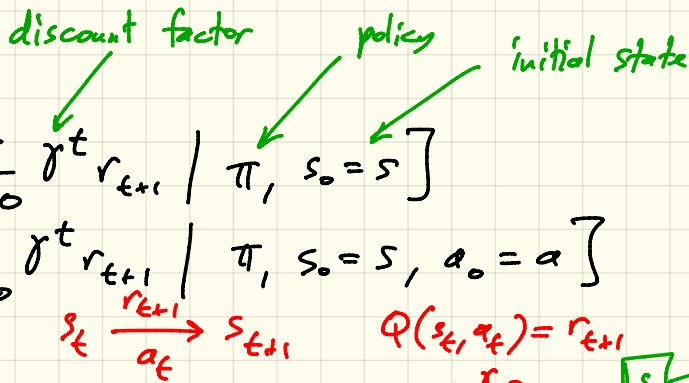 discount factor policy initial state
0 γ^t r_{t+1} | π, s_0 = s ]
γ^t r_{t+1} | π, s_0 = s, a_0 = a ]
s_t \xrightarrow[a_t]{r_{t+1}} s_{t+1} Q(s_t, a_t) = r_{t+1}